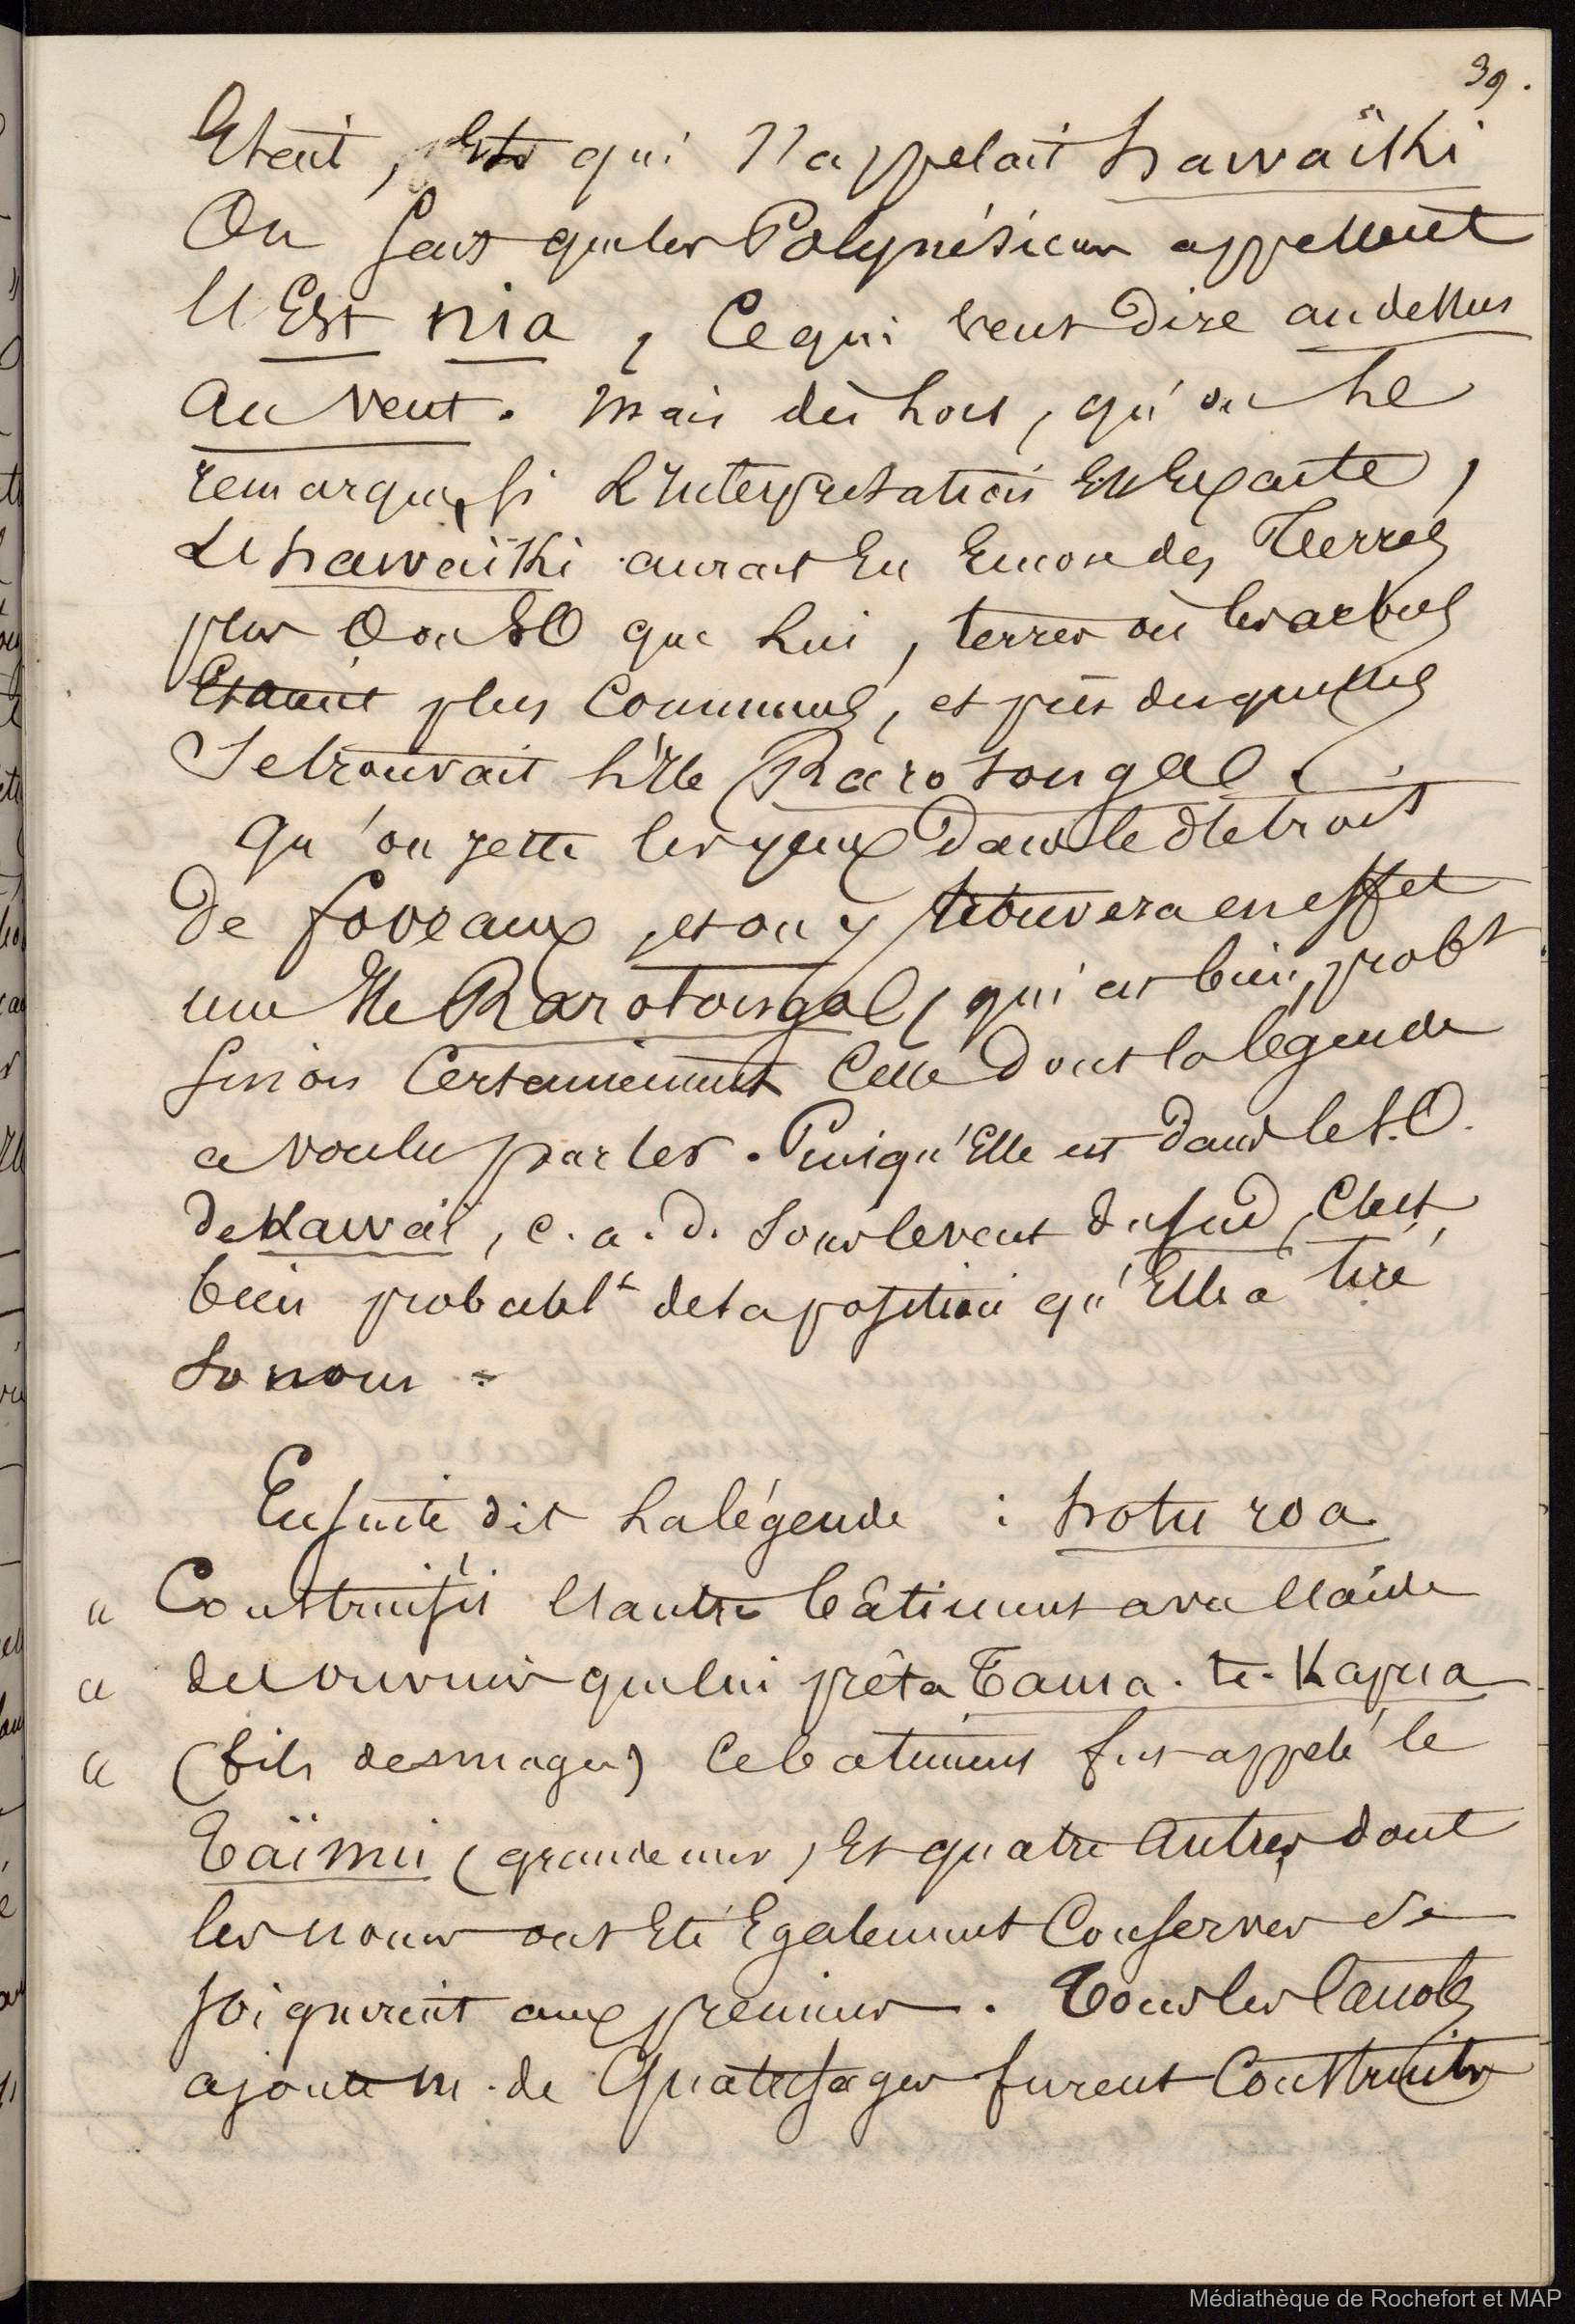 39.
Etait, qui s'appelait hawaïki
On sait que les Polynésiens appellent
l'Est nia, ce qui veut dire au dessus
au vent. Mais dès lors, qu'on le
remarque, si l'interprétation est exacte,
l'hawaïki aurait eu encore des Terres
plus O ou SO que lui, terres où les arbres
Etaient plus communs, et près desquelles
Se trouvait l'Ile Rarotonga.
Qu'on jette les yeux dans le détroit
De foveaux, et on y trouvera en effet
une Ile Rarotonga, qui est bien, probt
sinon certainement celle dont la légende
a voulu parler. Puisqu'Elle est dans le S.O.
de Kawaï, c. a. d. sous le vent du sud, c'est
bien probablt de sa position qu'Elle a tiré
son nom =
Ensuite dit la légende : hotu roa
" Construisit l'autre bâtiment avec l'aide
" des ouvriers que lui prêta Tama-te-Kapua
" (fils des nuages) ce batiment fut appelé le
Taïnui (grande mer) Et quatre autres dont
les noms ont été Egalement Conservés se
joignirent aux premiers. Tous les Canots
ajoute M. de Quatrefages furent Construits
Médiathèque de Rochefort et MAP